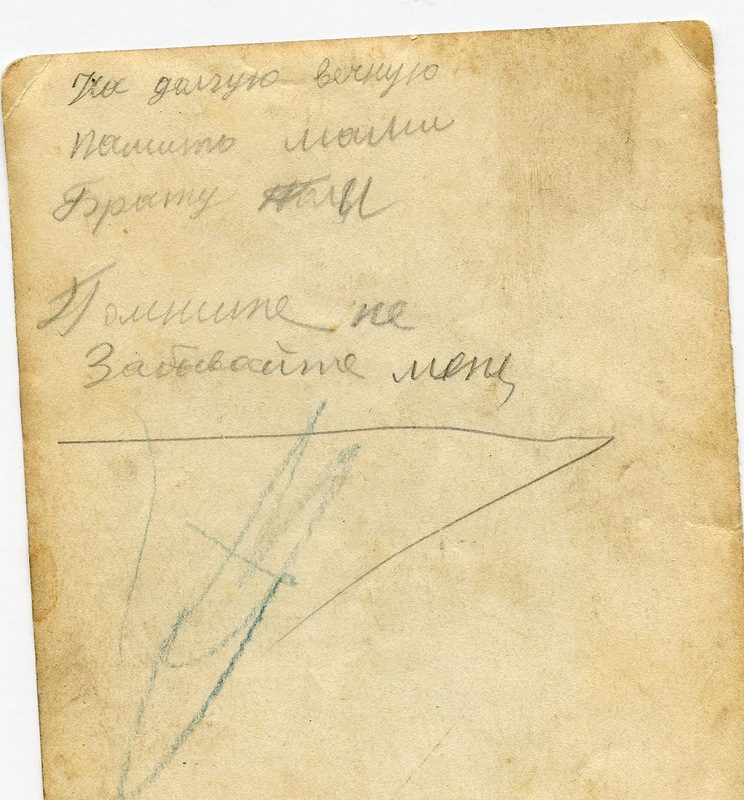 На долгую вечную
памить мами
Брату
Помните не
Забывайте меня